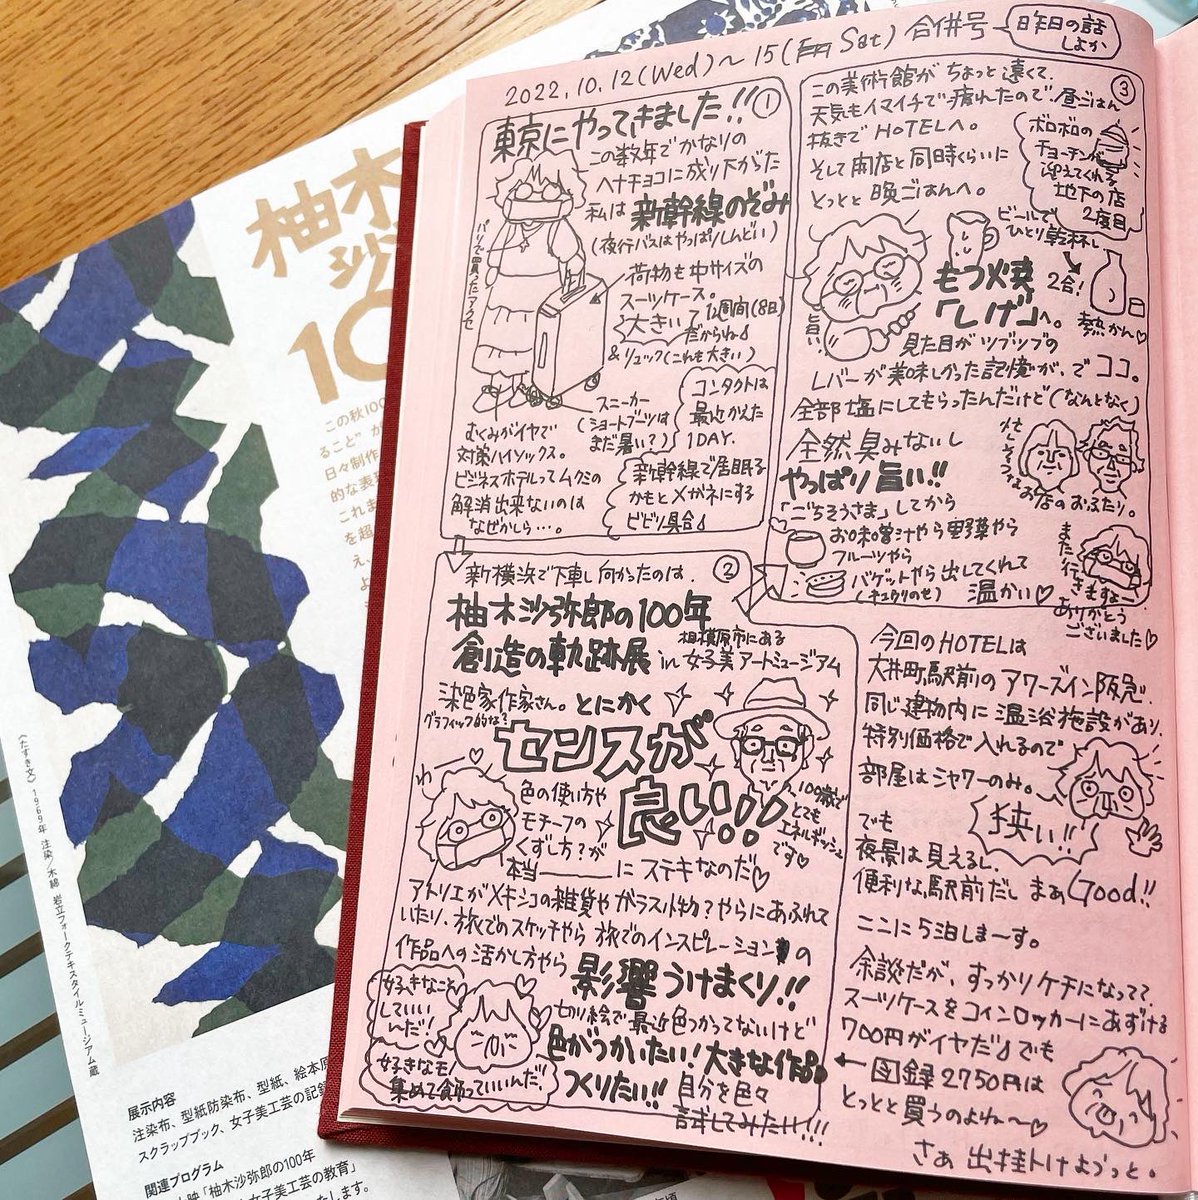 2022.10.12(Wed)~15(Sat) 合併号
昨日の話
しよか
①
東京にやってきました!!
この数年でかなりの
ヘナチョコに成り下がった
私は 新幹線のぞみ
(夜行バスはやっぱりしんどい)
パリで買ったアクセ
荷物も中サイズの
スーツケース。
大きいて1週間(8日)
だからね♪
&リュック(これも大きい)
スニーカー
(ショートブーツは
まだ暑い?)
コンタクトは
最近かえた
1DAY.
むくみがイヤで
対策ハイソックス。
ビジネスホテルってムクミの
解消出来ないのは
なぜかしら…。
新幹線で居眠る
かもとメガネにする
ビビリ具合♪
②
新横浜で下車し向かったのは、
柚木沙弥郎の100年
創造の軌跡展
相模原市にある
in 女子美アートミュージアム
染色家作家さん。とにかく
グラフィック的な?
センスが
良い!!
100歳で
とても
エネルギッシュ
です♡
わー♡
色の使い方や
モチーフの
くずし方?が
本当――にステキなのだ♡
アトリエがメキシコの雑貨やガラス小物?やらにあふれて
いたり、旅でのスケッチやら旅でのインスピレーションの
作品への活かし方やら
影響うけまくり!!
好きなこと
していい
んだ!
好きなモノ
集めて飾っていいんだ!
切り絵で最近色つかってないけど
色がつかいたい!大きな作品
つくりたい!!
自分を色々
試してみたい!!!
③
この美術館がちょっと遠くて、
天気もイマイチで疲れたので、昼ごはん
抜きでHOTELへ。
そして開店と同時くらいに
とっとと晩ごはんへ。
ボロボロの
チョーチンが
迎えてくれる
地下の店
2度目
ビールで
ひとり乾杯し
2合!
熱かん♡
旨い
もつ焼
「しげ」へ。
見た目がツブツブの
レバーが美味しかった記憶が、でココ。
全部塩にしてもらったんだけど(なんとなく)
全然臭みないし
やっぱり旨い!!
やさしそうな
お店のおふたり。
「ごちそうさま」してから
お味噌汁やら野菜やら
フルーツやら
バゲットやら出してくれて
(キュウリのせ)
温かい♡
また行きますねー
ありがとう
ございました♡
今回のHOTELは
大井町駅前のアワーズイン阪急.
同じ建物内に温浴施設があり、
特別価格で入れるので
部屋はシャワーのみ。
狭い!!
でも
夜景は見えるし、
便利な駅前だし まあGood!!
ここに5泊しまーす。
余談だが、すっかりケチになってて、
スーツケースをコインロッカーにあずける
700円がイヤだ♪でも
←図録2750円は
とっとと買うのよねー♡
さぁ 出掛けようっと。
柚木
沙
10
この秋100
ること”が
日々制作
的な表
これま
を超
え、
よ
《たすき文》1969年 注染/木綿 岩立フォークテキスタイルミュージアム蔵
展示内容
注染布、型紙防染布、型紙、絵本原
スクラップブック、女子美工芸の記録
関連プログラム
映「柚木沙弥郎の100年
女子美工芸の教育」
たします。